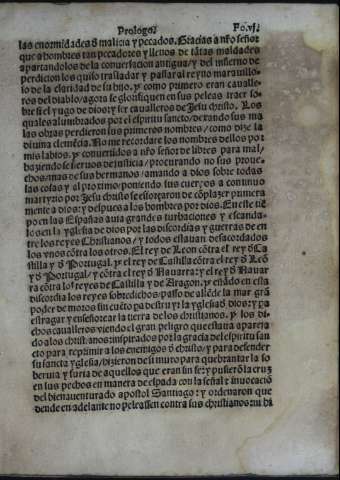 Prologo. Fo.vj.
las enormidades d̃ malicia y pecados. Gracias a ñro señor
que a hombres tan pecadores y llenos de tãtas maldades
apartandolos de la conuersacion antigua/ y del infierno de
perdicion los quiso trasladar y passar al reyno marauillo-
so de la claridad de su hijo. y como primero eran caualle-
ros del diablo/ agora se glorifiquen en sus peleas traer so-
bre si el yugo de dios y ser caualleros de Jesu christo. Los
quales alumbrados por el espiritu sancto/ dexando sus ma
las obras perdieron sus primeros nombres/ como dize la
diuina clemẽcia. No me recordare los nombres dellos por
mis labios. y conuertidos a ñro señor de libres para mal/
haziendo se sieruos de justicia/ procurando no sus proue-
chos/ mas de sus hermanos/ amando a dios sobre todas
las cosas y al proximo/ poniendo sus cuerpos a continuo
martyrio por Jesu christo se esforçaron de cõplazer primera
mente a dios: y despues a los hombres por dios. En este tiẽ
po en las Españas auia grandes turbaciones y escanda-
lo en la yglesia de dios por las discordias y guerras de en
tre los reyes Christianos/ y todos estauan desacordados
los vnos cõtra los otros. El rey de Leon cõtra el rey d̃ Ca
stilla y d̃ Portugal. y el rey de Castilla cõtra el rey d̃ Leõ
y d̃ Portugal/ y cõtra el rey d̃ Nauarra: y el rey d̃ Nauar
ra cõtra los reyes de Castilla y de Aragon. y estãdo en esta
discordia los reyes sobredichos/ passo de allẽde la mar grã
poder de moros sin cuẽto pa destruyr la yglesia d̃ dios/ y pa
estragar y enseñorear la tierra de los christianos. y los di-
chos caualleros viendo el gran peligro que estaua apareja
do a los christianos: inspirados por la gracia del espiritu san
cto para reprimir a los enemigos d̃ christo/ y para defender
su sancta yglesia/ hizieron de si muro para quebrantar la so
beruia y furia de aquellos que eran sin fe: y pusierõ la cruz
en sus pechos en manera de espada con la señal & inuocaciõ
del bienauenturado apostol Santiago: y ordenaron que
dende en adelante no peleassen contra sus christianos: ni hi